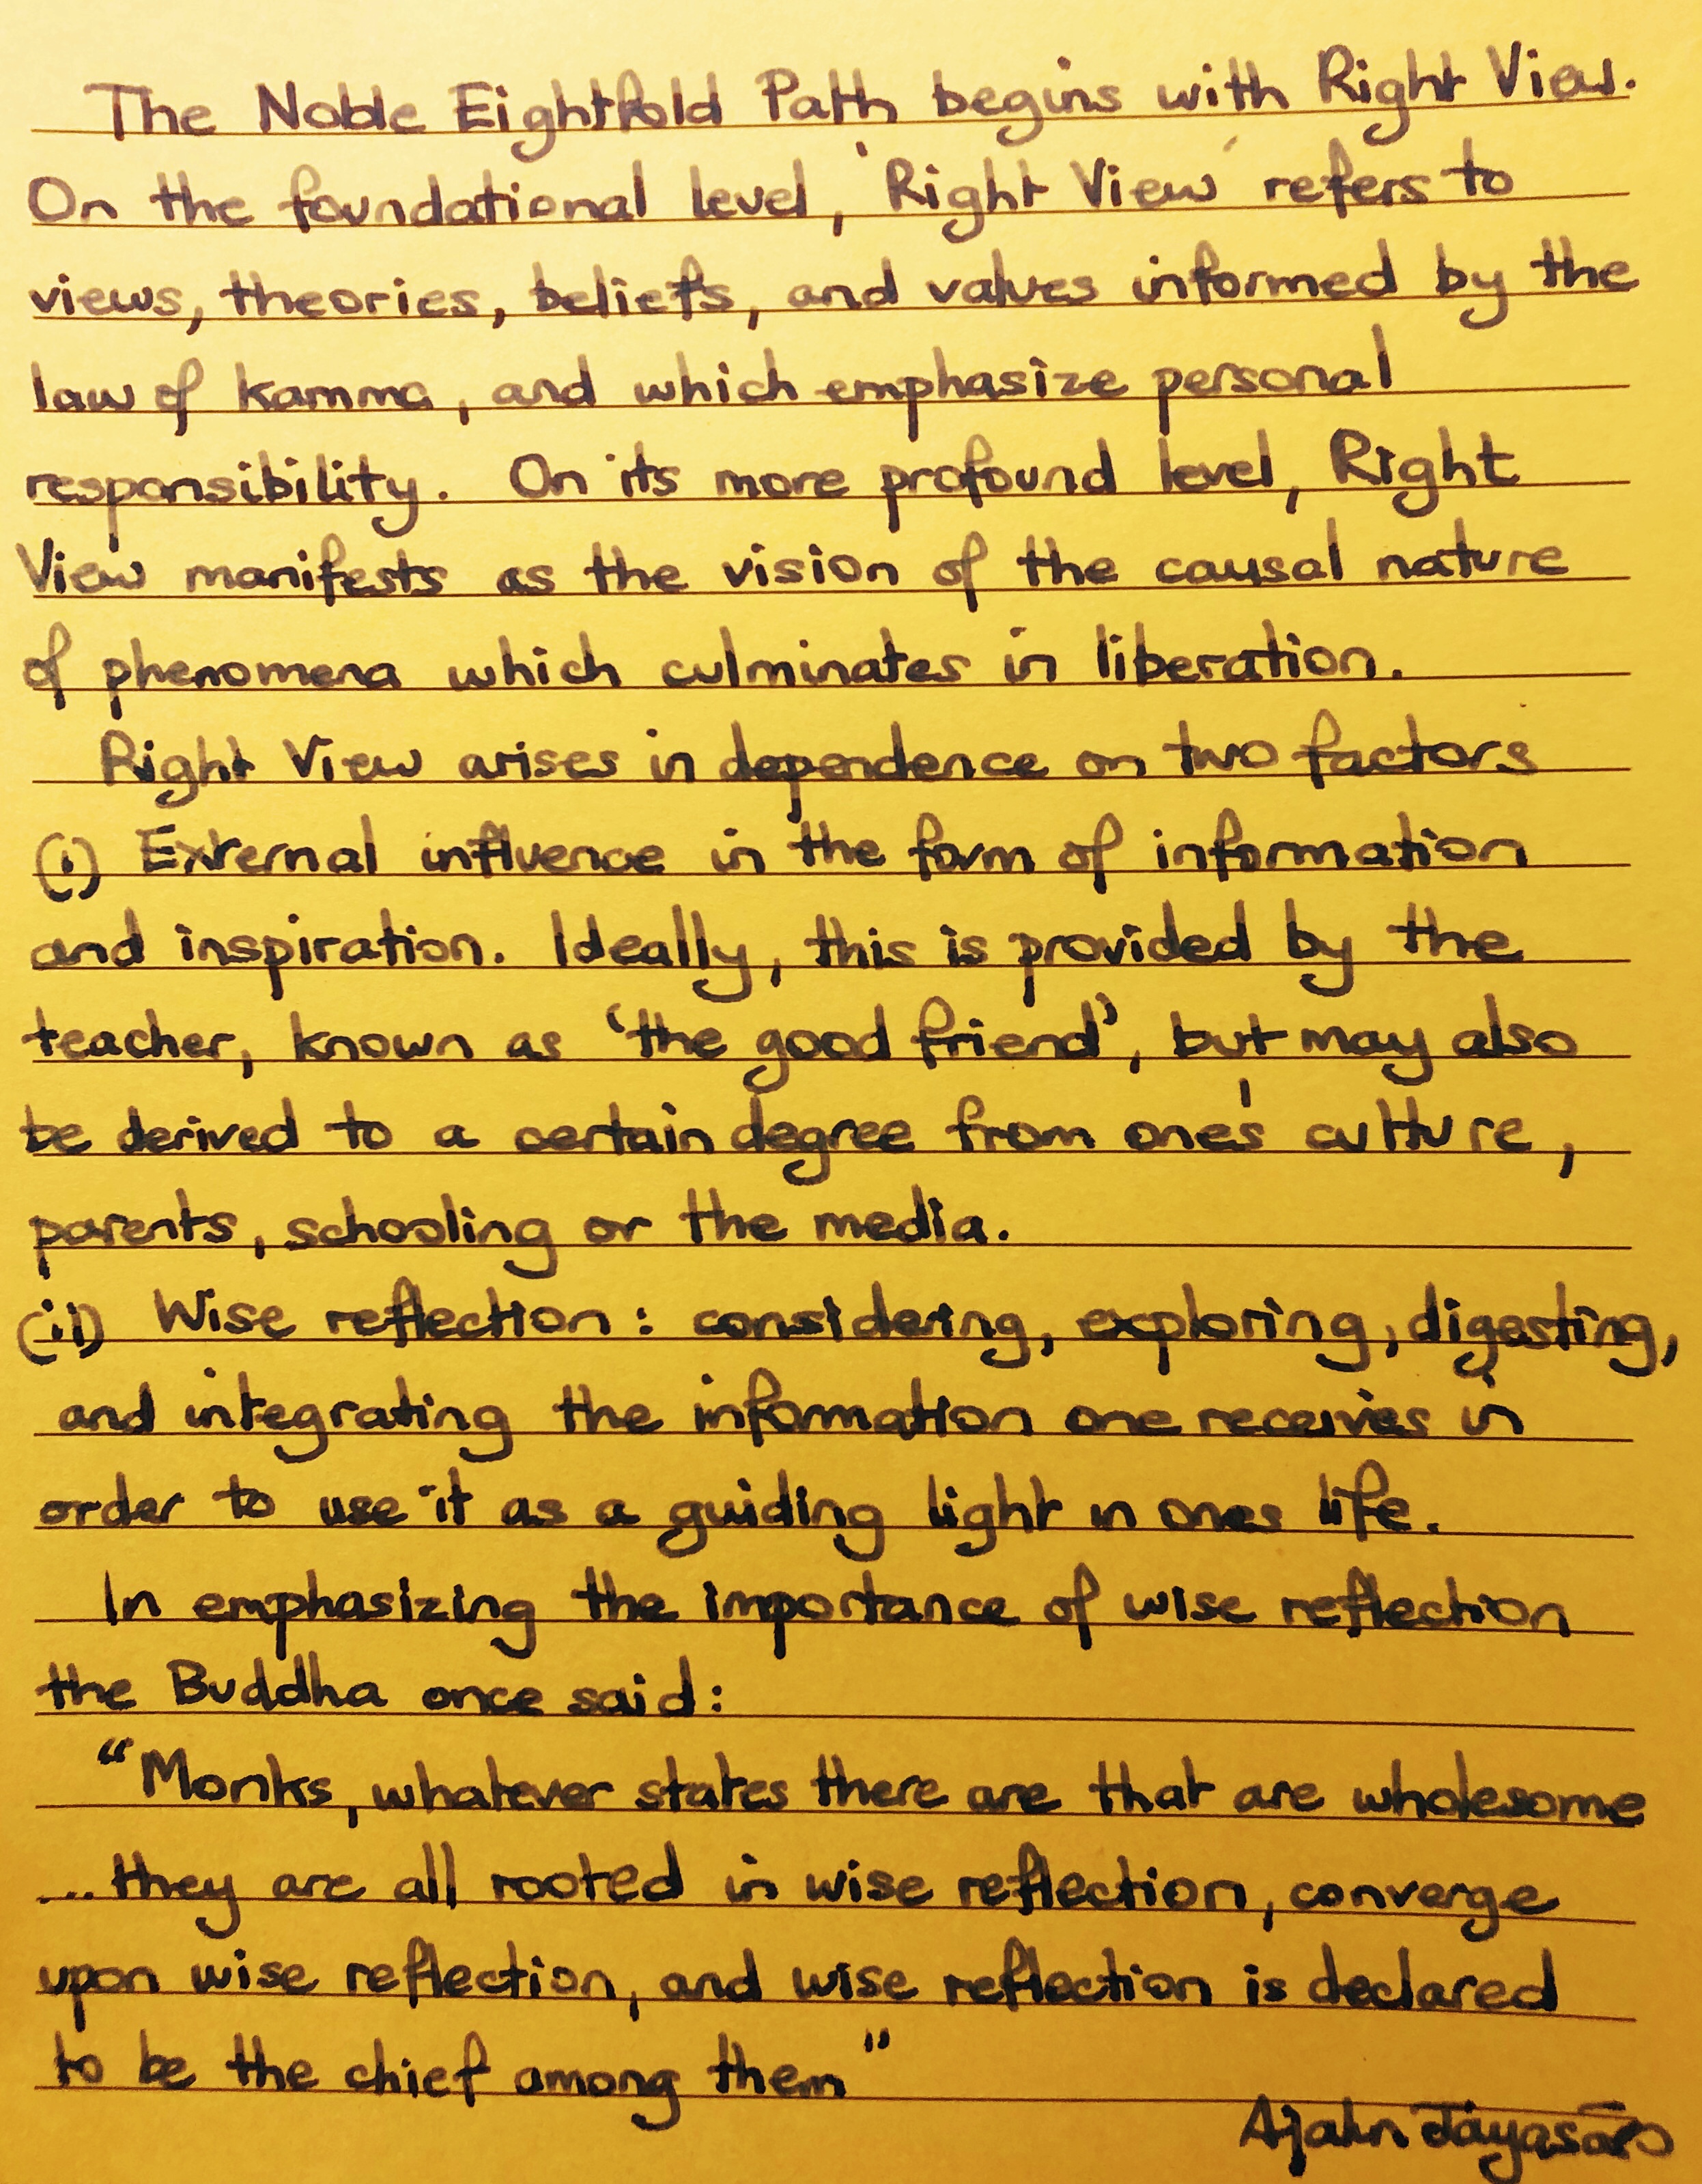 The Noble Eightfold Path begins with Right View.
On the foundational level, 'Right View' refers to
views, theories, beliefs, and values informed by the
law of kamma, and which emphasize personal
responsibility. On its more profound level, Right
View manifests as the vision of the causal nature
of phenomena which culminates in liberation.
Right View arises in dependence on two factors
(i) External influence in the form of information
and inspiration. Ideally, this is provided by the
teacher, known as 'the good friend', but may also
be derived to a certain degree from one's culture,
parents, schooling or the media.
(ii) Wise reflection: considering, exploring, digesting,
and integrating the information one receives in
order to use it as a guiding light in ones life.
In emphasizing the importance of wise reflection
the Buddha once said:
"Monks, whatever states there are that are wholesome
... they are all rooted in wise reflection, converge
upon wise reflection, and wise reflection is declared
to be the chief among them"
Ajahn Jayasāro